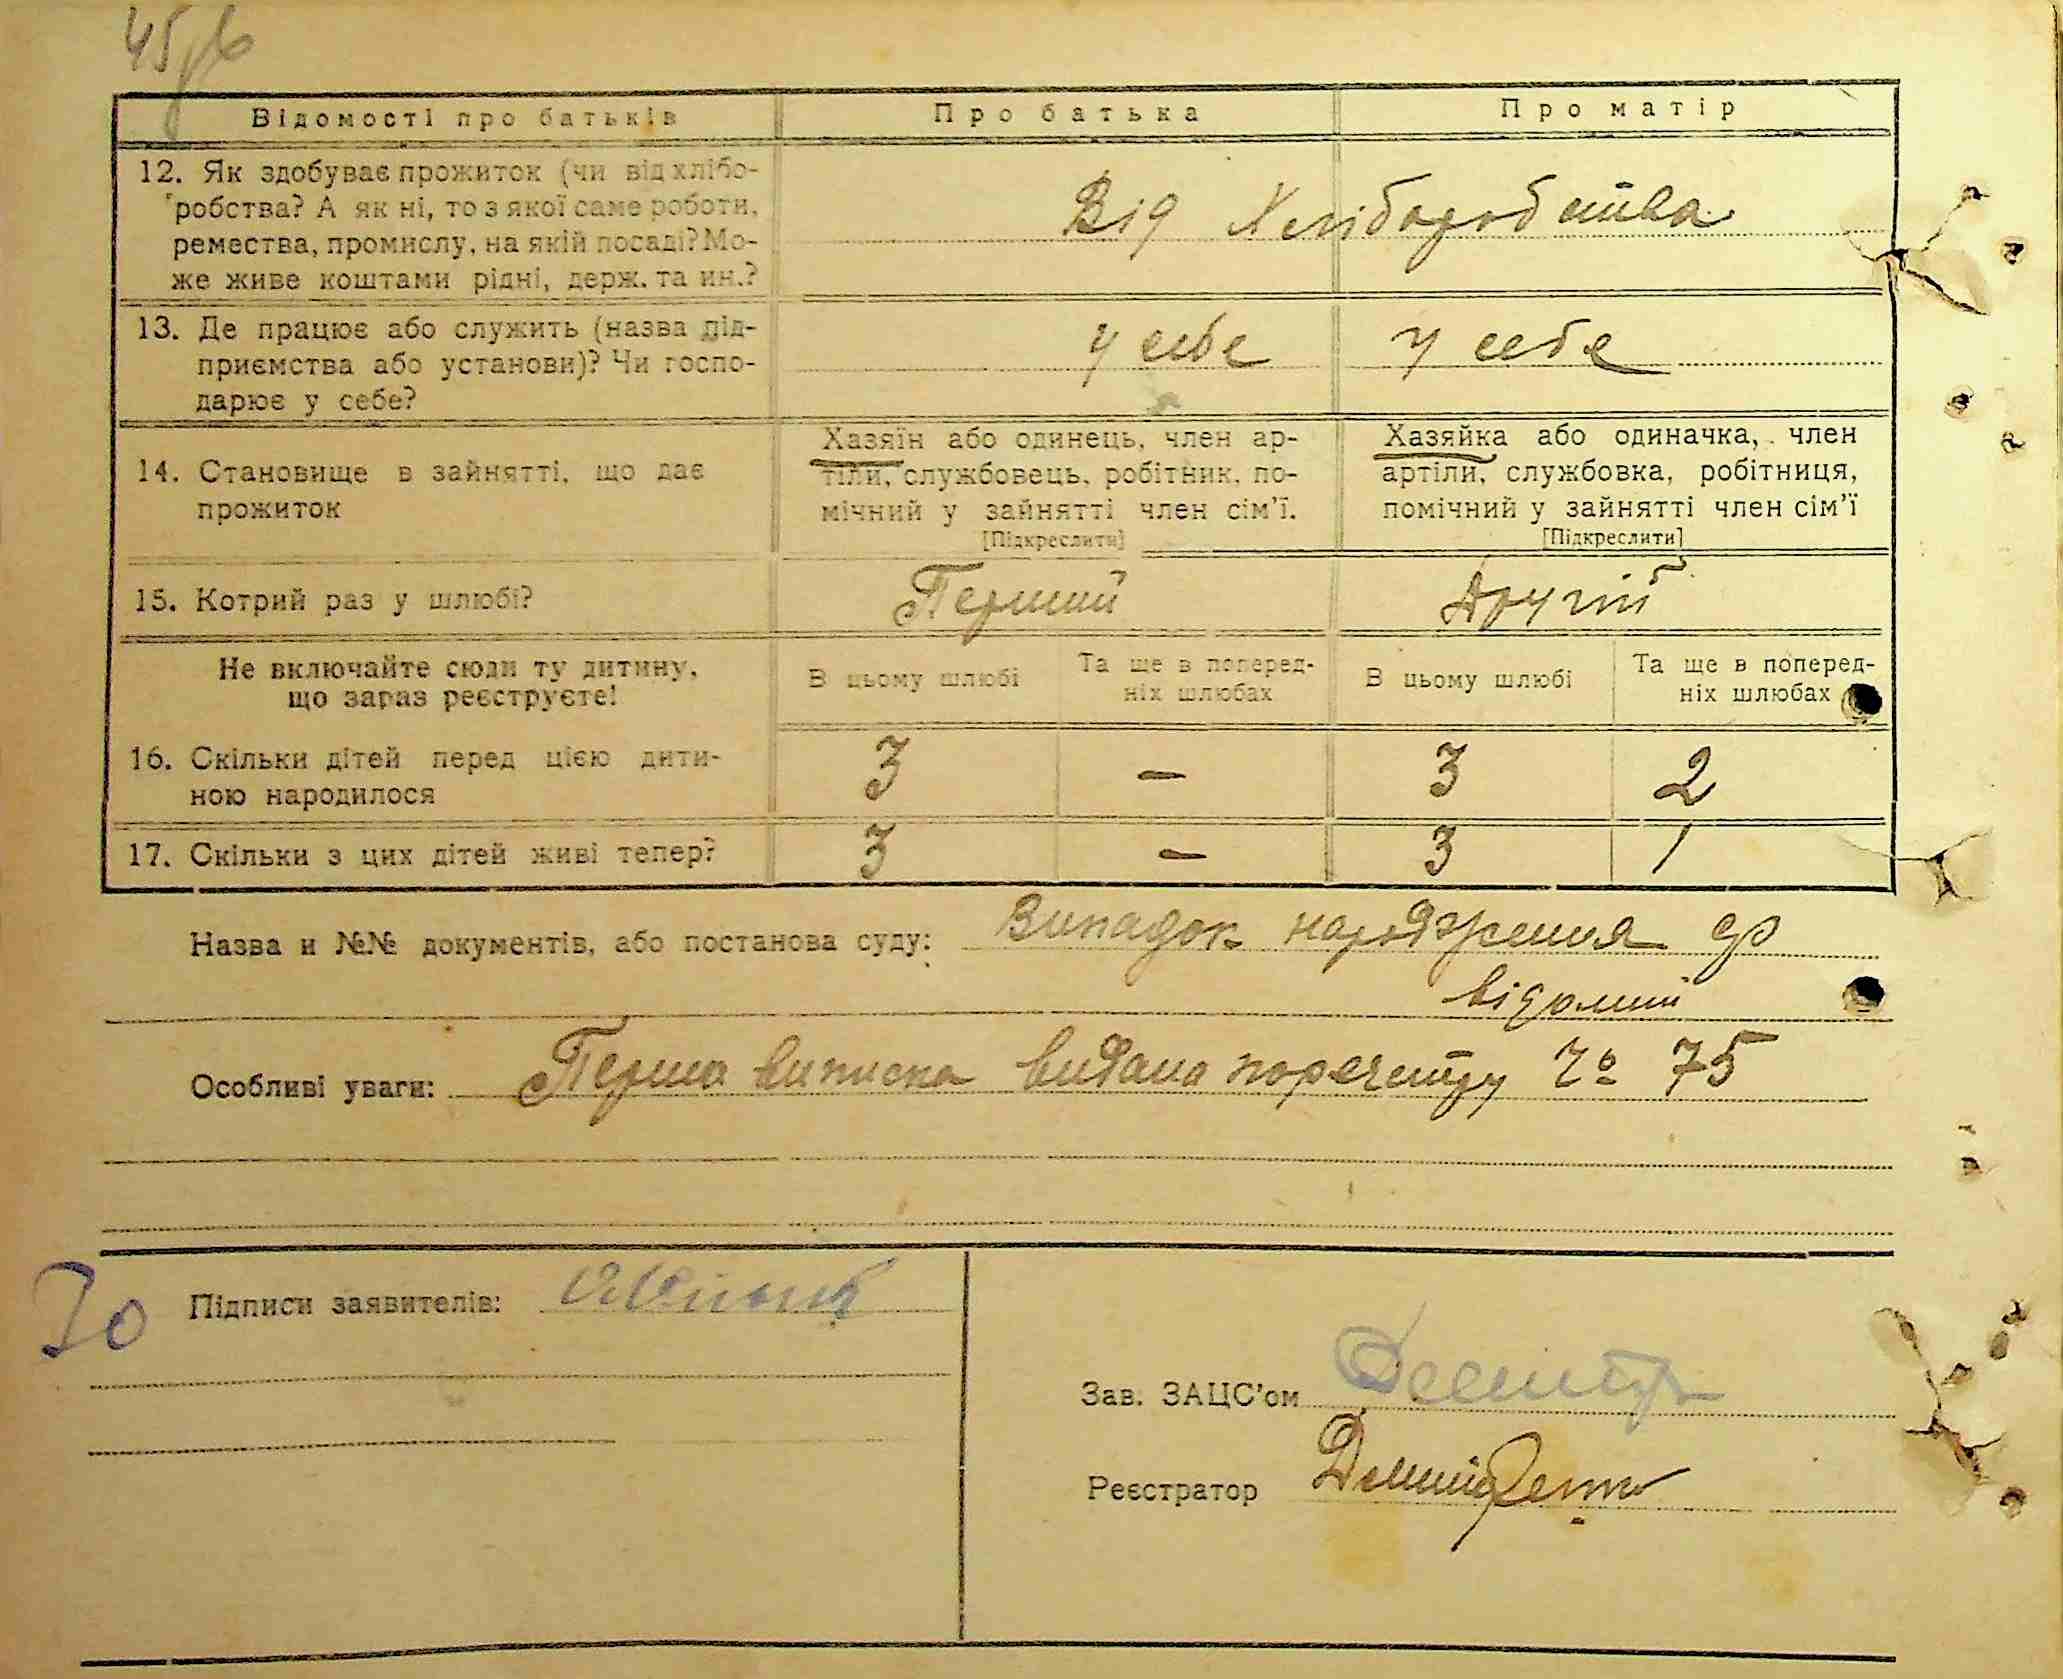 45
Відомості про батьків
Про батька
Про матір
12. Як здобуває прожиток (чи від хлібо-
робства? А як ні, то з якої саме роботи,
ремества, промислу, на якій посаді? Мо-
же живе коштами рідні, держ. та ин.?
Від Хліборобства
13. Де працює або служить (назва під-
приємства або установи)? Чи госпо-
дарює у себе?
у себе
у себе
14. Становище в зайнятті, що дає
прожиток
Хазяїн або одинець, член ар-
тіли, службовець, робітник, по-
мічний у зайнятті член сім'ї.
[Підкреслити]
Хазяйка або одиначка, член
артіли, службовка, робітниця,
помічний у зайнятті член сім'ї
[Підкреслити]
15. Котрий раз у шлюбі?
Перший
Другий
Не включайте сюди ту дитину,
що зараз реєструєте!
В цьому шлюбі
Та ще в поперед-
ніх шлюбах
В цьому шлюбі
Та ще в поперед-
ніх шлюбах
16. Скільки дітей перед цією дити-
ною народилося
3
—
3
2
17. Скільки з цих дітей живі тепер?
3
—
3
1
Назва и №№ документів, або постанова суду: Випадок народження
відомий
Особливі уваги: Перша виписка видана пореєстру № 75
Підписи заявителів:
Зав. ЗАЦС'ом
Реєстратор